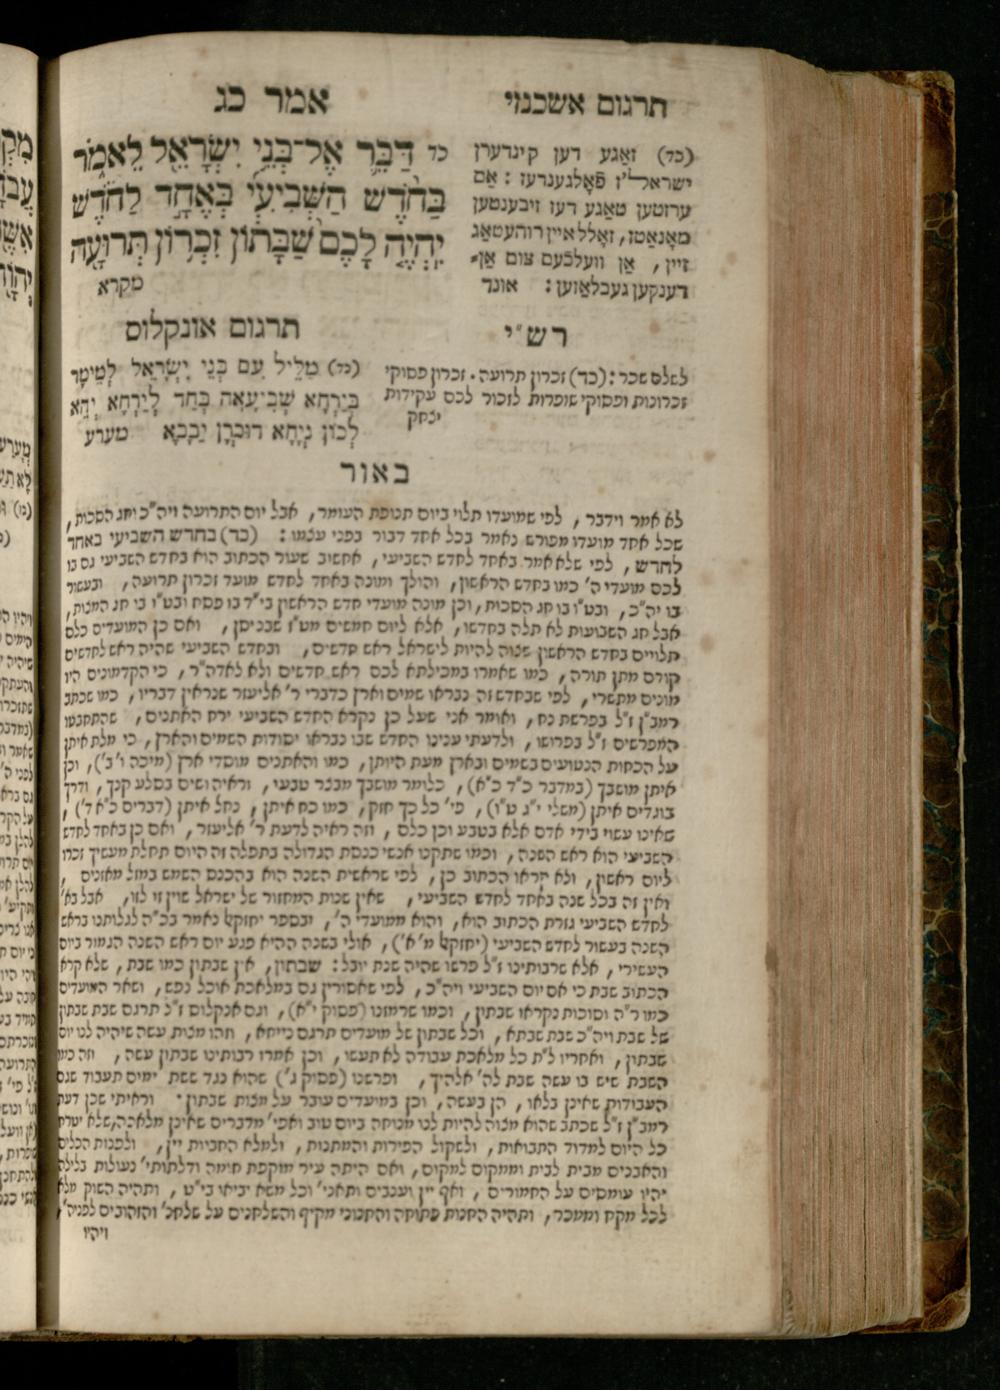 תרגום אשכנזי
אמר כג
כד דַּבֵּ֛ר אֶל־בְּנֵ֥י יִשְׂרָאֵ֖ל לֵאמֹ֑ר
בַּחֹ֨דֶשׁ הַשְּׁבִיעִ֜י בְּאֶחָ֣ד לַחֹ֗דֶשׁ
יִהְיֶ֤ה לָכֶם֙ שַׁבָּת֔וֹן זִכְר֥וֹן תְּרוּעָ֖ה
מקרא
(כד) זאַגע דען קינדערן
ישראל'ז פֿאָלגענדעז : אַם
ערזטען טאַגע דעז זיבענטען
מאָנאַטז, זאָלל איין רוהעטאַג
זיין, אַן וועלכעם צום אַנ⸗
דענקען געבלאַזען : אונד
תרגום אונקלוס
(כד) מַלֵּיל עִם בְּנֵי יִשְׂרָאֵל לְמֵימָר
בְּיַרְחָא שְׁבִיעָאָה בְּחַד לְיַרְחָא יְהֵא
לְכוֹן נְיָחָא דּוּכְרַן יַבָּבָא מערע
רש״י
לשלם שכר : (כד) זכרון תרועה. זכרון פסוקי
זכרונות ופסוקי שופרות לזכור לכם עקידות
יצחק
באור
לא אמר וידבר, לפי שמועדו תלוי ביום תנופת העומר, אבל יום התרועה ויה״כ וחג הסכות,
שכל אחד מועדו מפורש נאמר בכל אחד דבור בפני עצמו : (כד) בחדש השביעי באחד
לחדש, לפי שלא אמר באחד לחדש השביעי, אחשוב שעור הכתוב הוא בחדש השביעי גם בו
לכם מועדי ה' כמו בחדש הראשון, והולך ומונה באחד לחדש מועד זכרון תרועה, ובעשור
בו יה״כ, ובט״ו בו חג הסכות, וכן מונה מועדי חדש הראשון בי״ד בו פסח ובט״ו בו חג המצות,
אבל חג השבועות לא תלה בחדשו, אלא ליום חמשים מט״ז שבניסן, ואם כן המועדים כלם
תלויים בחדש הראשון שצוה להיות לישראל ראש חדשים, ובחדש השביעי שהיה ראש לחדשים
קודם מתן תורה, כמו שאמרו במכילתא לכם ראש חדשים ולא לאדה״ר, כי הקדמונים היו
מונים מתשרי, לפי שבחדש זה נבראו שמים וארץ כדברי ר' אליעזר שנראין דבריו, כמו שכתב
רמב״ן ז״ל בפרשת נח, ואומר אני שעל כן נקרא החדש השביעי ירח האתנים, שהתחבטו
המפרשים ז״ל בפרושו, ולדעתי ענינו החדש שבו נבראו יסודות השמים והארץ, כי מלת איתן
על הכחות הנטועים בשמים ובארץ מעת היותן, כמו והאתנים מוסדי ארץ (מיכה ו' ב'), וכן
איתן מושבך (במדבר כ״ד כ״א), כלומר מושבך מבצר טבעי, וראיה ושים בסלע קנך, ודרך
בוגדים איתן (משלי י״ג ט״ו), פי' כל כך חזק, כמו כח איתן, נחל איתן (דברים כ״א ד'),
שאינו עשוי בידי אדם אלא בטבע וכן כלם, וזה ראיה לדעת ר' אליעזר, ואם כן באחד לחדש
השביעי הוא ראש השנה, וכמו שתקנו אנשי כנסת הגדולה בתפלה זה היום תחלת מעשיך זכרון
ליום ראשון, ולא קראו הכתוב כן, לפי שראשית השנה הוא בהכנס השמש במזל מאזנים,
ואין זה בכל שנה באחד לחדש השביעי, שאין שנות המחזור של ישראל שוין זו לזו, אבל בא'
לחדש השביעי גזרת הכתוב הוא, והוא ממועדי ה', ובספר יחזקאל נאמר בכ״ה לגלותנו בראש
השנה בעשור לחדש השביעי (יחזקאל מ' א'), אולי בשנה ההיא פגע יום ראש השנה הגמור ביום
העשירי, אלא שרבותינו ז״ל פרשו שהיה שנת יובל : שבתון, אין שבתון כמו שבת, שלא קרא
הכתוב שבת כי אם יום השביעי ויה״כ, לפי שאסורין גם במלאכת אוכל נפש, ושאר המועדים
כמו ר״ה וסוכות נקראו שבתון, וכמו שרמזנו (פסוק י״א), וגם אנקלוס ז״ל תרגם שבת שבתון
של שבת ויה״כ שבת שבתא, וכל שבתון של מועדים תרגם נייחא, וזהו מצות עשה שיהיה לנו יום
שבתון, ואחריו ל״ת כל מלאכת עבודה לא תעשו, וכן אמרו רבותינו שבתון עשה, וזה כמו
השבת שיש בו עשה שבת לה' אלהיך, ופרשנו (פסוק ג') שהוא כנגד ששת ימים תעבוד שגם
העבודות שאינן בלאו, הן בעשה, וכן במועדים עובר על מצות שבתון. וראיתי שכן דעת
רמב״ן ז״ל שכתב שהוא מצוה להיות לנו מנוחה ביום טוב ואפי' מדברים שאינן מלאכה, שלא יטרח
כל היום למדוד התבואות, ולשקול הפירות והמתנות, ולמלא החביות יין, ולפנות הכלים
והאבנים מבית לבית וממקום למקום, ואם היתה עיר מוקפת חומה ודלתותי' נעולות בלילה
יהיו עומסים על החמורים, ואף יין וענבים ותאני' וכל משא יביאו בי״ט, ותהיה השוק מלא
לכל מקח וממכר, ותהיה החנות פתוחה והחנוני מקיף והשלחנים על שלחנ' והזהובים לפניה',
ויהיו